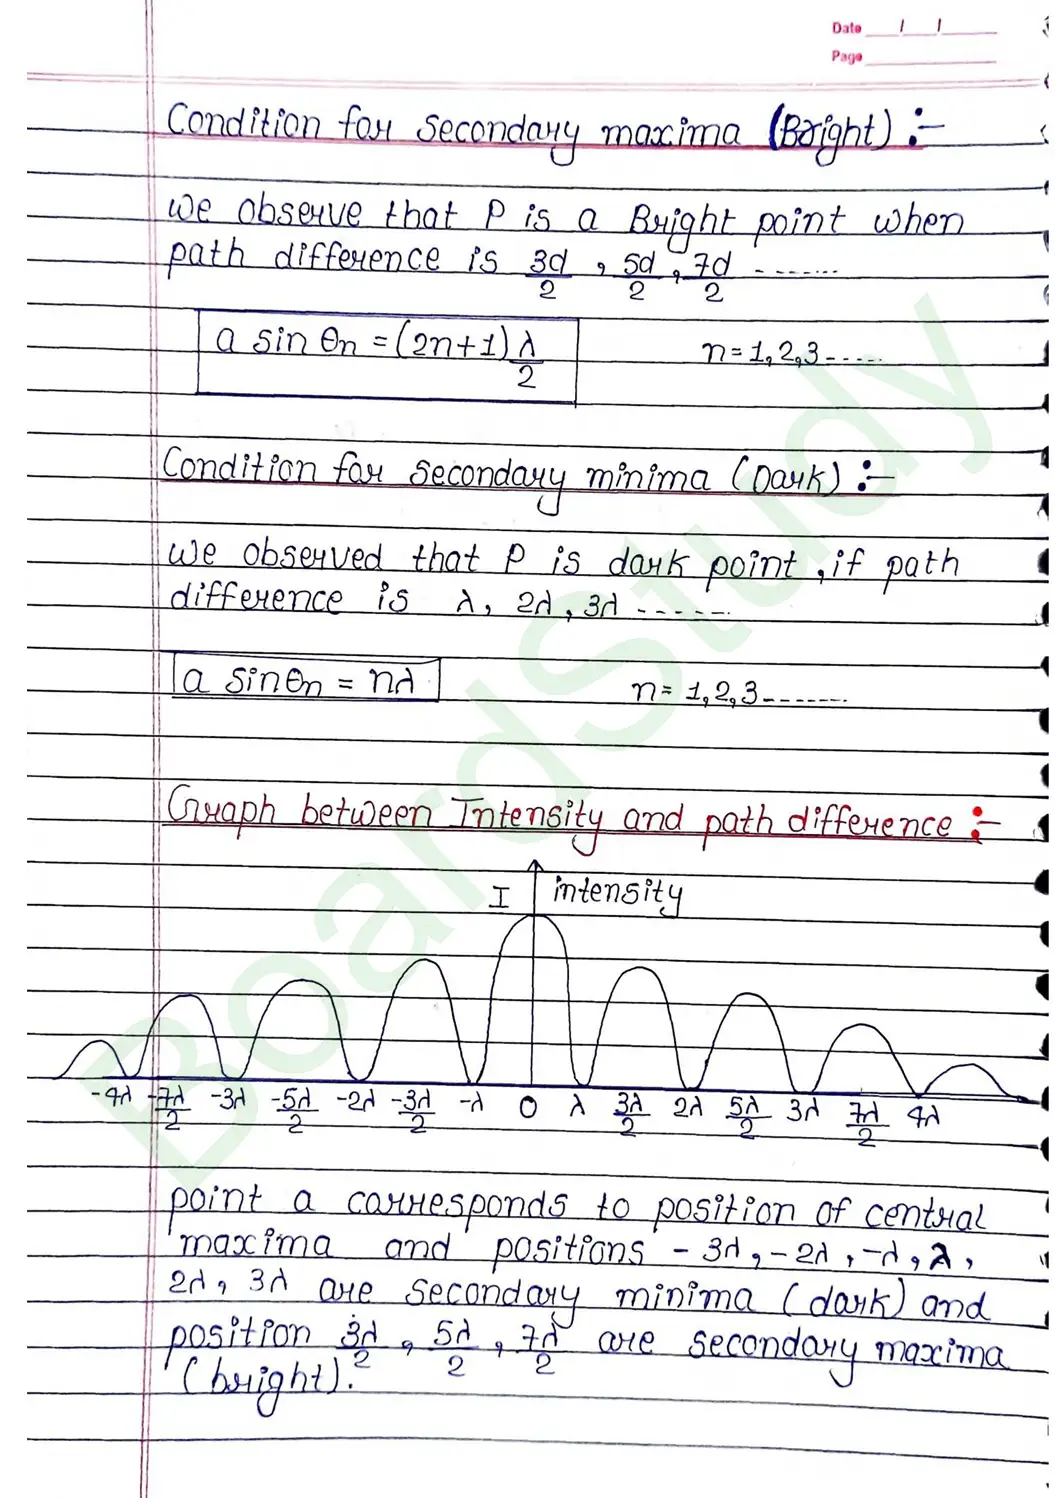 Date __/__/__
Page ______
Condition for secondary maxima (Bright) :-
we observe that P is a Bright point when
path difference is 3d/2 , 5d/2 , 7d/2 -------
a sin θn = (2n+1) λ/2 n = 1, 2, 3 -----
Condition for secondary minima (Dark) :-
we observed that P is dark point , if path
difference is λ, 2λ, 3λ ------
a sinθn = nλ n = 1, 2, 3 -------
Graph between Intensity and path difference :-
I intensity
-4λ -7λ/2 -3λ -5λ/2 -2λ -3λ/2 -λ 0 λ 3λ/2 2λ 5λ/2 3λ 7λ/2 4λ
point a corresponds to position of central
maxima and positions - 3λ, - 2λ, -λ, λ,
2λ, 3λ are secondary minima (dark) and
position 3λ/2 , 5λ/2 , 7λ/2 are secondary maxima
(bright).
BoardStudy